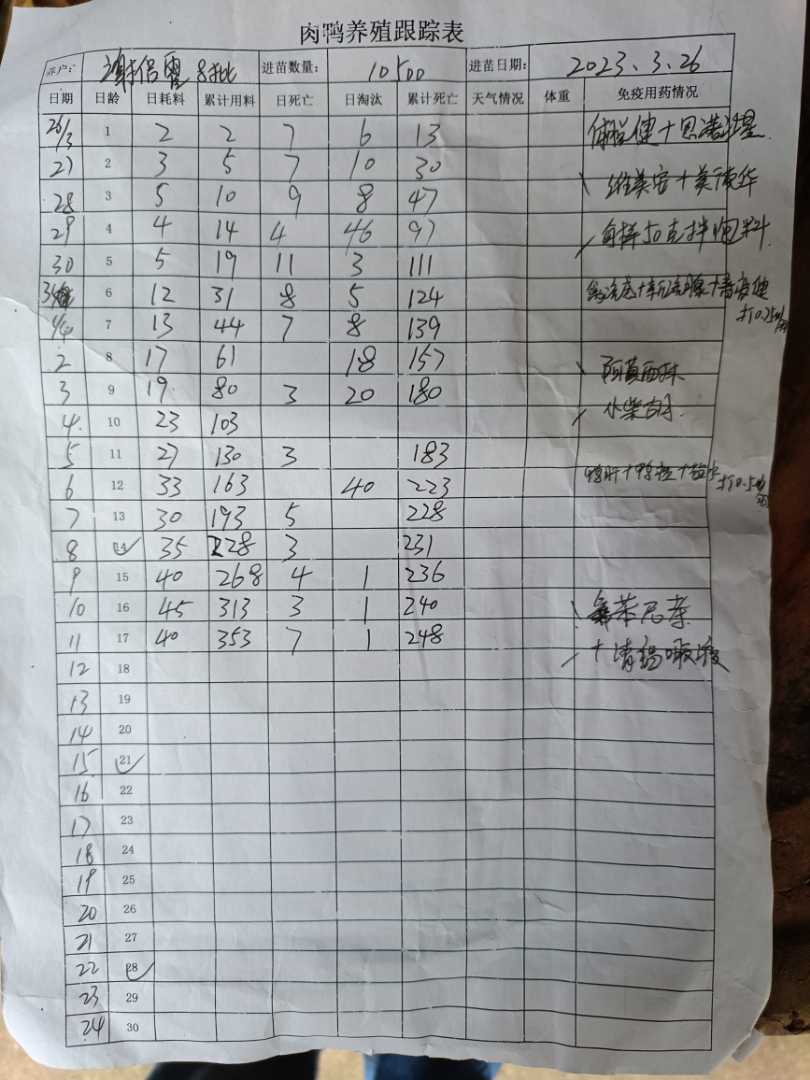 肉鸭养殖跟踪表
养户: 谢侣霞 8批 进苗数量: 10500 进苗日期: 2023.3.26
日期 日龄 日耗料 累计用料 日死亡 日淘汰 累计死亡 天气情况 体重 免疫用药情况
26/3 1 2 2 7 6 13
27 2 3 5 7 10 30
28 3 5 10 9 8 47
29 4 4 14 4 46 97
30 5 5 19 11 3 111
31 6 12 31 8 5 124
7 13 44 7 8 139
2 8 17 61 18 157 阿莫西林
3 9 19. 80 3 20 180 小柴胡
4. 10 23 103
5 11 27 130 3 183
6 12 33 163 40 223
7 13 30 193 5 228
8 14 35 228 3 231
9 15 40 268 4 1 236
10 16 45 313 3 1 240 氟苯尼考
11 17 40 353 7 1 248
12 18
13 19
14 20
15 21
16 22
17 23
18 24
19 25
20 26
21 27
22 28
23 29
24 30